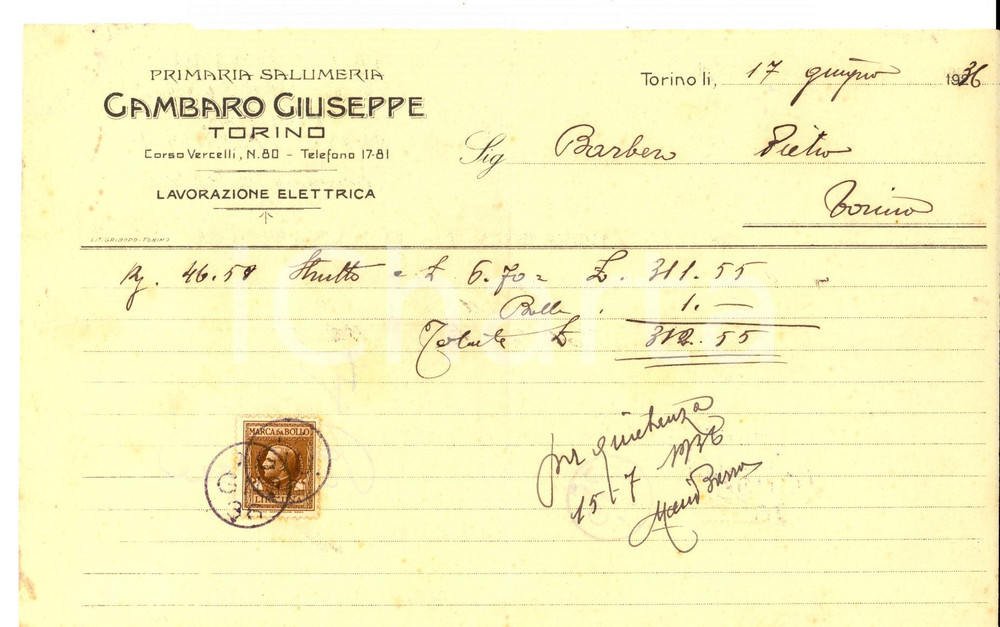 PRIMARIA SALUMERIA
GAMBARO GIUSEPPE
TORINO
Corso Vercelli, N. 80 - Telefono 17-81
LAVORAZIONE ELETTRICA
LIT. GRIBODO-TORINO
Torino li, 17 giugno 1936
Sig Barbero Pietro
Torino
Kg. 46.50 Strutto a £ 6.70 = £. 311.55
Bollo . 1. —
Totale £ 312.55
MARCA DA BOLLO
LIRE UNO
36
per quietanza
15/7 1936
Mario
iCharta